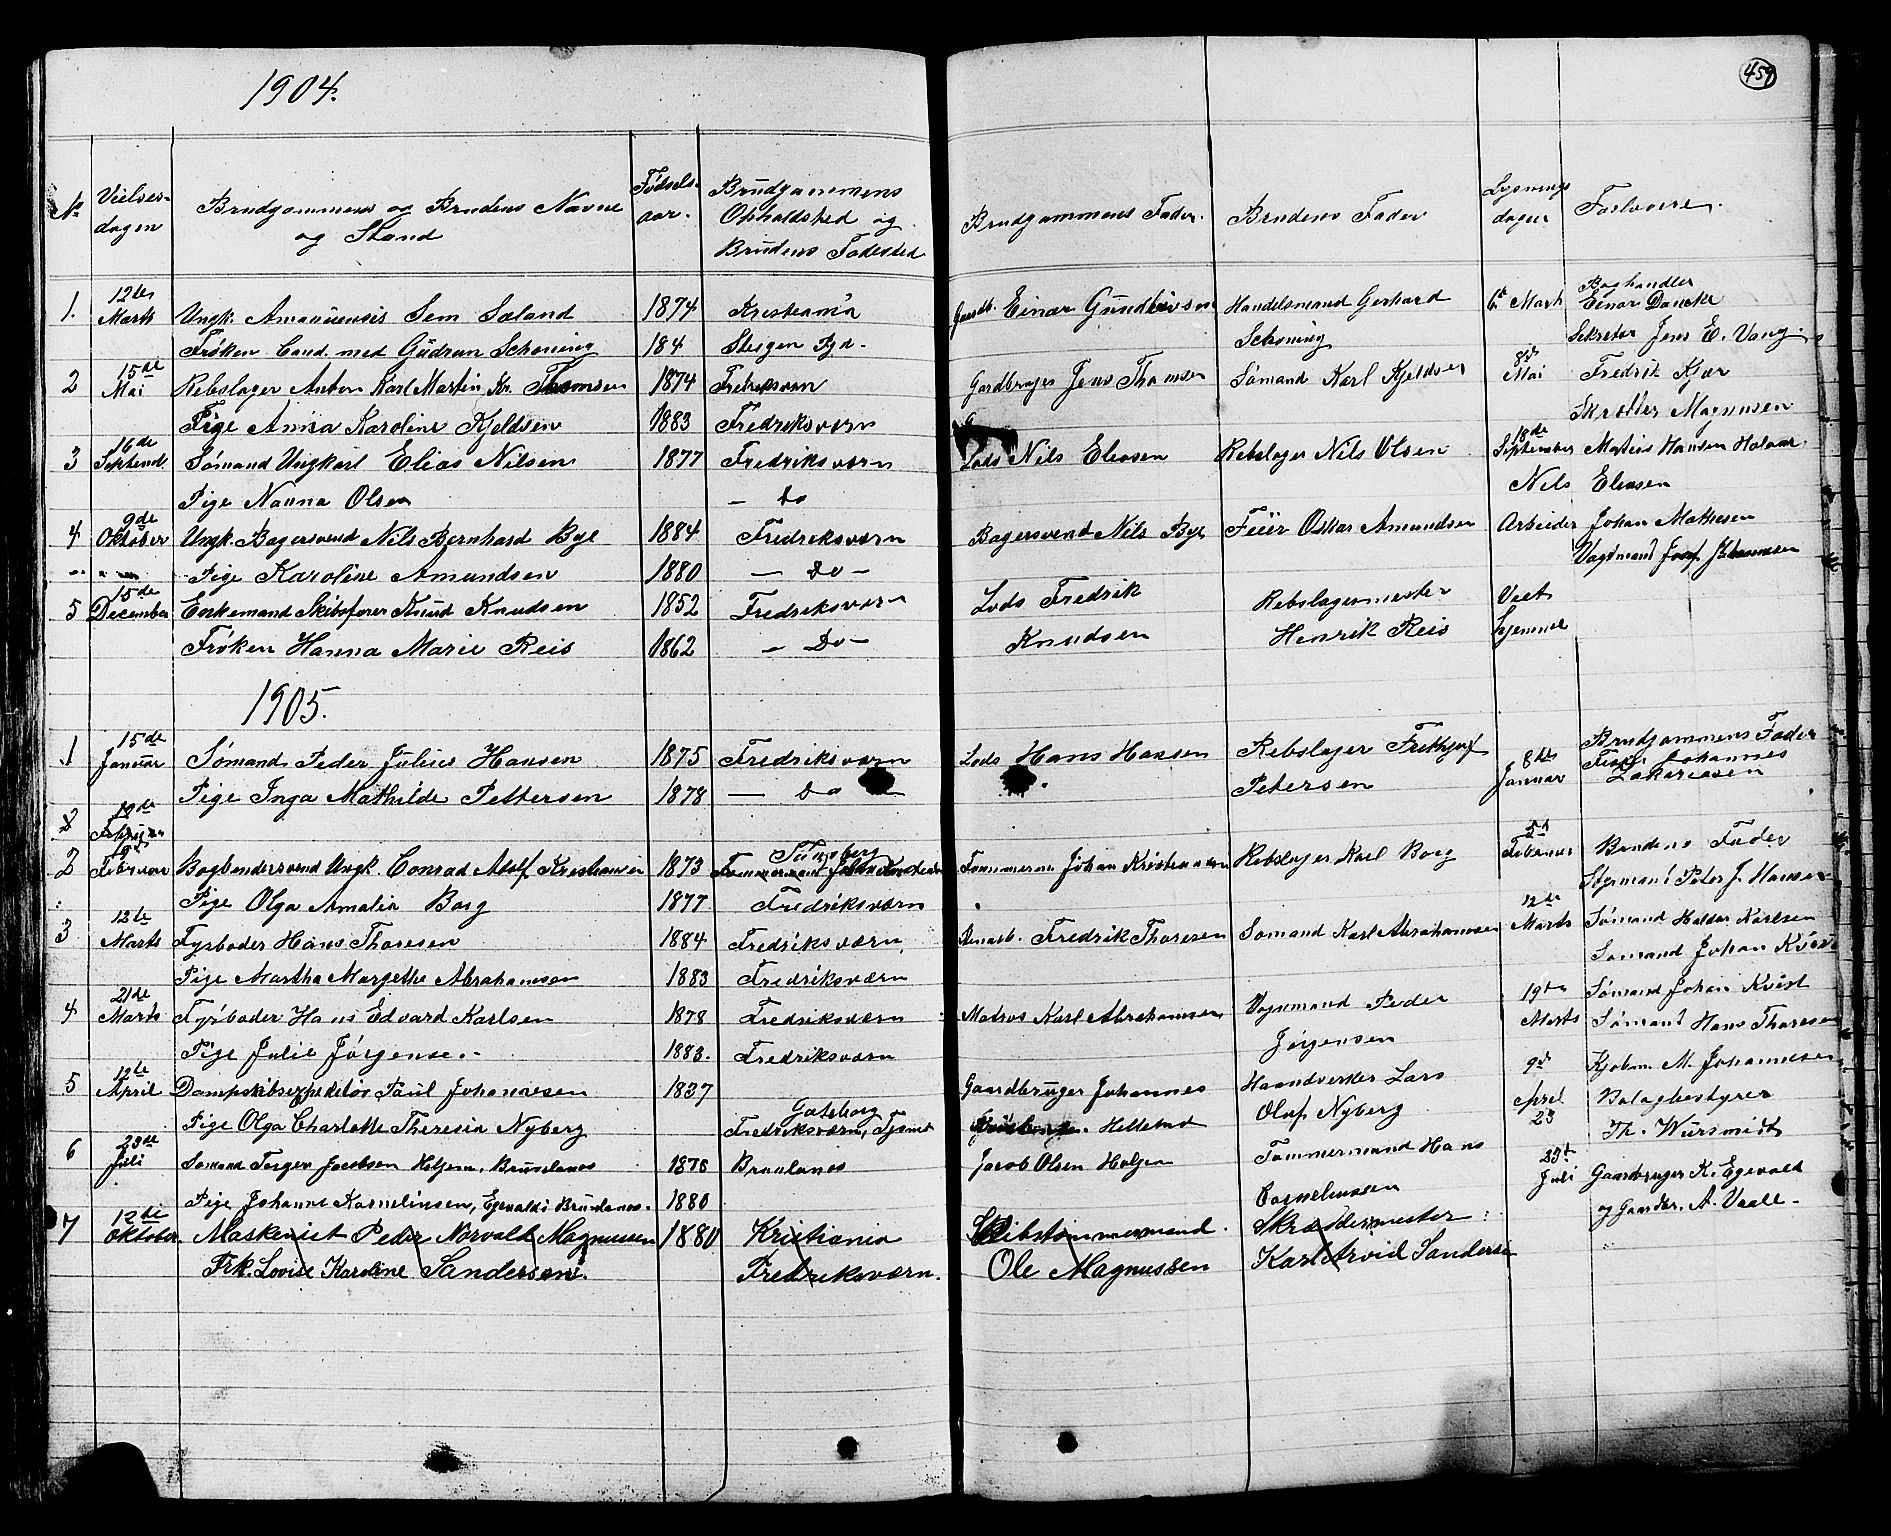 1904.
459
No
Vielses-
dagen
Brudgommens og Brudens Navne
og Stand
Fødsels-
aar.
Brudgommens
Opholdsted og
Brudens Fødested
Brudgommens Fader.
Brudens Fader
Lysnings
dager
Forlovere.
1. 12te Marts Ungk. Amanuensis Sem Sæland 1874 Kristiania Einar Gundersen Handelsmand Gerhard 6te Marts Boghandler Einar Dancke
Frøken Cand. med Gudrun Schøning 184 Steigen Schøning Sekretær Jens E. Vang.
2 15de Mai Rebslager Anton Karl Martin Kr. Thomsen 1874 Fredriksværn Gardbruger Jens Thomsen Sømand Karl Kjeldsen 8de Mai Fredrik Kjær
Pige Anna Karoline Kjeldsen 1883 Fredriksværn Skrædder Magnusen
3 16de Septemb. Sømand Ungkarl Elias Nilsen 1877 Fredriksværn Lods Nils Eliasen Rebslager Nils Olsen 18de September Matias Hansen
Pige Nanna Olsen — Do Nils Eliasen
4 9de Oktober Ungk. Bagersvend Nils Bernhard Bye 1884 Fredriksværn Bagersvend Nils Bye Feier Oskar Amundsen Arbeider Johan Mathesen
Pige Karoline Amundsen 1880 — Do — Vagtmand Johannesen
5 15de December Enkemand Skibsfører Knud Knudsen 1852 Fredriksværn Lods Fredrik Rebslagermester Viet
Frøken Hanna Marie Reis 1862 — Do — Knudsen Henrik Reis hjemme
1905.
1 15de Januar Sømand Peder Julius Hansen 1875 Fredriksværn Lods Hans Hansen Rebslager Frithjof 8de Januar Brudgommens Fader
Johannes Zakariasen
Pige Inga Mathilde Pettersen 1878 — Do — Petersen
2 19de Februar
2 Februar Bogbindersvend Ungk. Conrad Adolf Kristiansen 1873 Tønsberg Tømmermand Johan Kristiansen Rebslager Karl Borg 5te Februar Brudens Fader
Pige Olga Amalia Borg 1877 Fredriksværn Styrmand Peter J. Hansen
3 12te Marts Fyrbøder Hans Thoresen 1884 Fredriksværn Fredrik Thoresen Sømand Karl Abrahamsen 12te Marts Sømand Haldor Karlsen
Pige Martha Margethe Abrahamsen 1883 Fredriksværn Sømand Johan Kvist
4 21de Marts Fyrbøder Hans Edvard Karlsen 1878 Fredriksværn Matros Karl Abrahamsen Vognmand Peder 19de Marts Sømand Johan Kvist
Pige Julie Jørgensen 1883. Fredriksværn Jørgensen Sømand Hans Thoresen
5 12te April Dampskibsexpeditør Paul Johannesen 1837 Gaardbruger Johannes Haandverker Lars 9de April Kjøbm. M. Johannesen
Pige Olga Charlotte Theresia Nyberg Gøteborg Fredriksværn, Tjømø Hellestad Olaf Nyberg 23 Bolagbestyrer
Th. Wursmidt
6 23de Juli Sømand Torger Jacobsen Holjem, Brunlanes 1876 Brunlanes Jacob Olsen Holjem Tømmermand Hans 23de Juli Gaardbruger K. Egevold
Pige Johanne Kornelinsen, Egevold i Brunlanes. 1880 Cornelinssen og Gaardbr. A. Vaale.
7 12te Oktober. Maskenist Peder Norvald Magnussen 1880 Kristiania Skibstømmermand. Skræddermester
Frk. Lovise Karoline Sanderson. Fredriksværn. Ole Magnussen Karl Arvid Sanderson